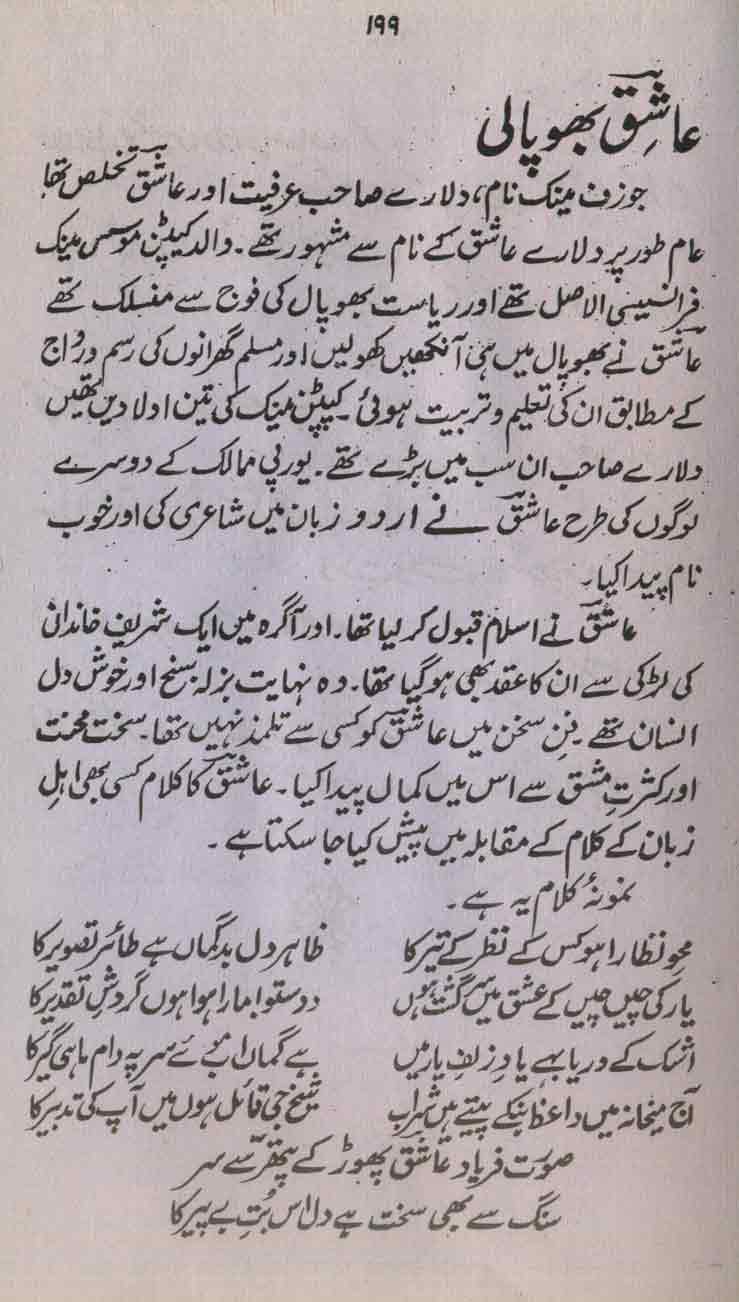 ۱۹۹
عاشق بھوپالی
جوزف مینک نام، دلارے صاحب عرفیت اور عاشق تخلص تھا
عام طور پر دلارے عاشق کے نام سے مشہور تھے۔ والد کیپٹن موسس مینک
فرانسیسی الاصل تھے اور ریاست بھوپال کی فوج سے منسلک تھے
عاشق نے بھوپال میں ہی آنکھیں کھولیں اور مسلم گھرانوں کی رسم و رواج
کے مطابق ان کی تعلیم و تربیت ہوئی۔ کیپٹن مینک کی تین اولادیں تھیں
دلارے صاحب ان سب میں بڑے تھے۔ یورپی ممالک کے دوسرے
لوگوں کی طرح عاشق نے اردو زبان میں شاعری کی اور خوب
نام پیدا کیا۔
عاشق نے اسلام قبول کر لیا تھا۔ اور آگرہ میں ایک شریف خاندان
کی لڑکی سے ان کا عقد بھی ہو گیا تھا۔ وہ نہایت بزلہ سنج اور خوش دل
انسان تھے فنِ سخن میں عاشق کو کسی سے تلمذ نہیں تھا۔ سخت محنت
اور کثرتِ مشق سے اس میں کمال پیدا کیا۔ عاشق کا کلام کسی بھی اہلِ
زبان کے کلام کے مقابلہ میں پیش کیا جا سکتا ہے۔
نمونۂ کلام یہ ہے۔
محو نظارا ہو کس کے نظر کے تیر کا ظاہر دل بدگماں ہے طائر تصویر کا
یار کی چیں جبیں کے عشق میں سرگشتہ ہوں دوستو! مارا ہوا ہوں گردشِ تقدیر کا
اشک کے دریا بہے یادِ زلفِ یار میں بے گماں اب ہے سر پہ دام ماہی گیر کا
آج میخانہ میں واعظ بنکے پیتے ہیں شراب شیخ جی قائل ہوں میں آپ کی تدبیر کا
صورت فرہاد عاشق پھوڑ کے پتھر سے سر
سنگ سے بھی سخت ہے دل اس بُتِ بے پیر کا